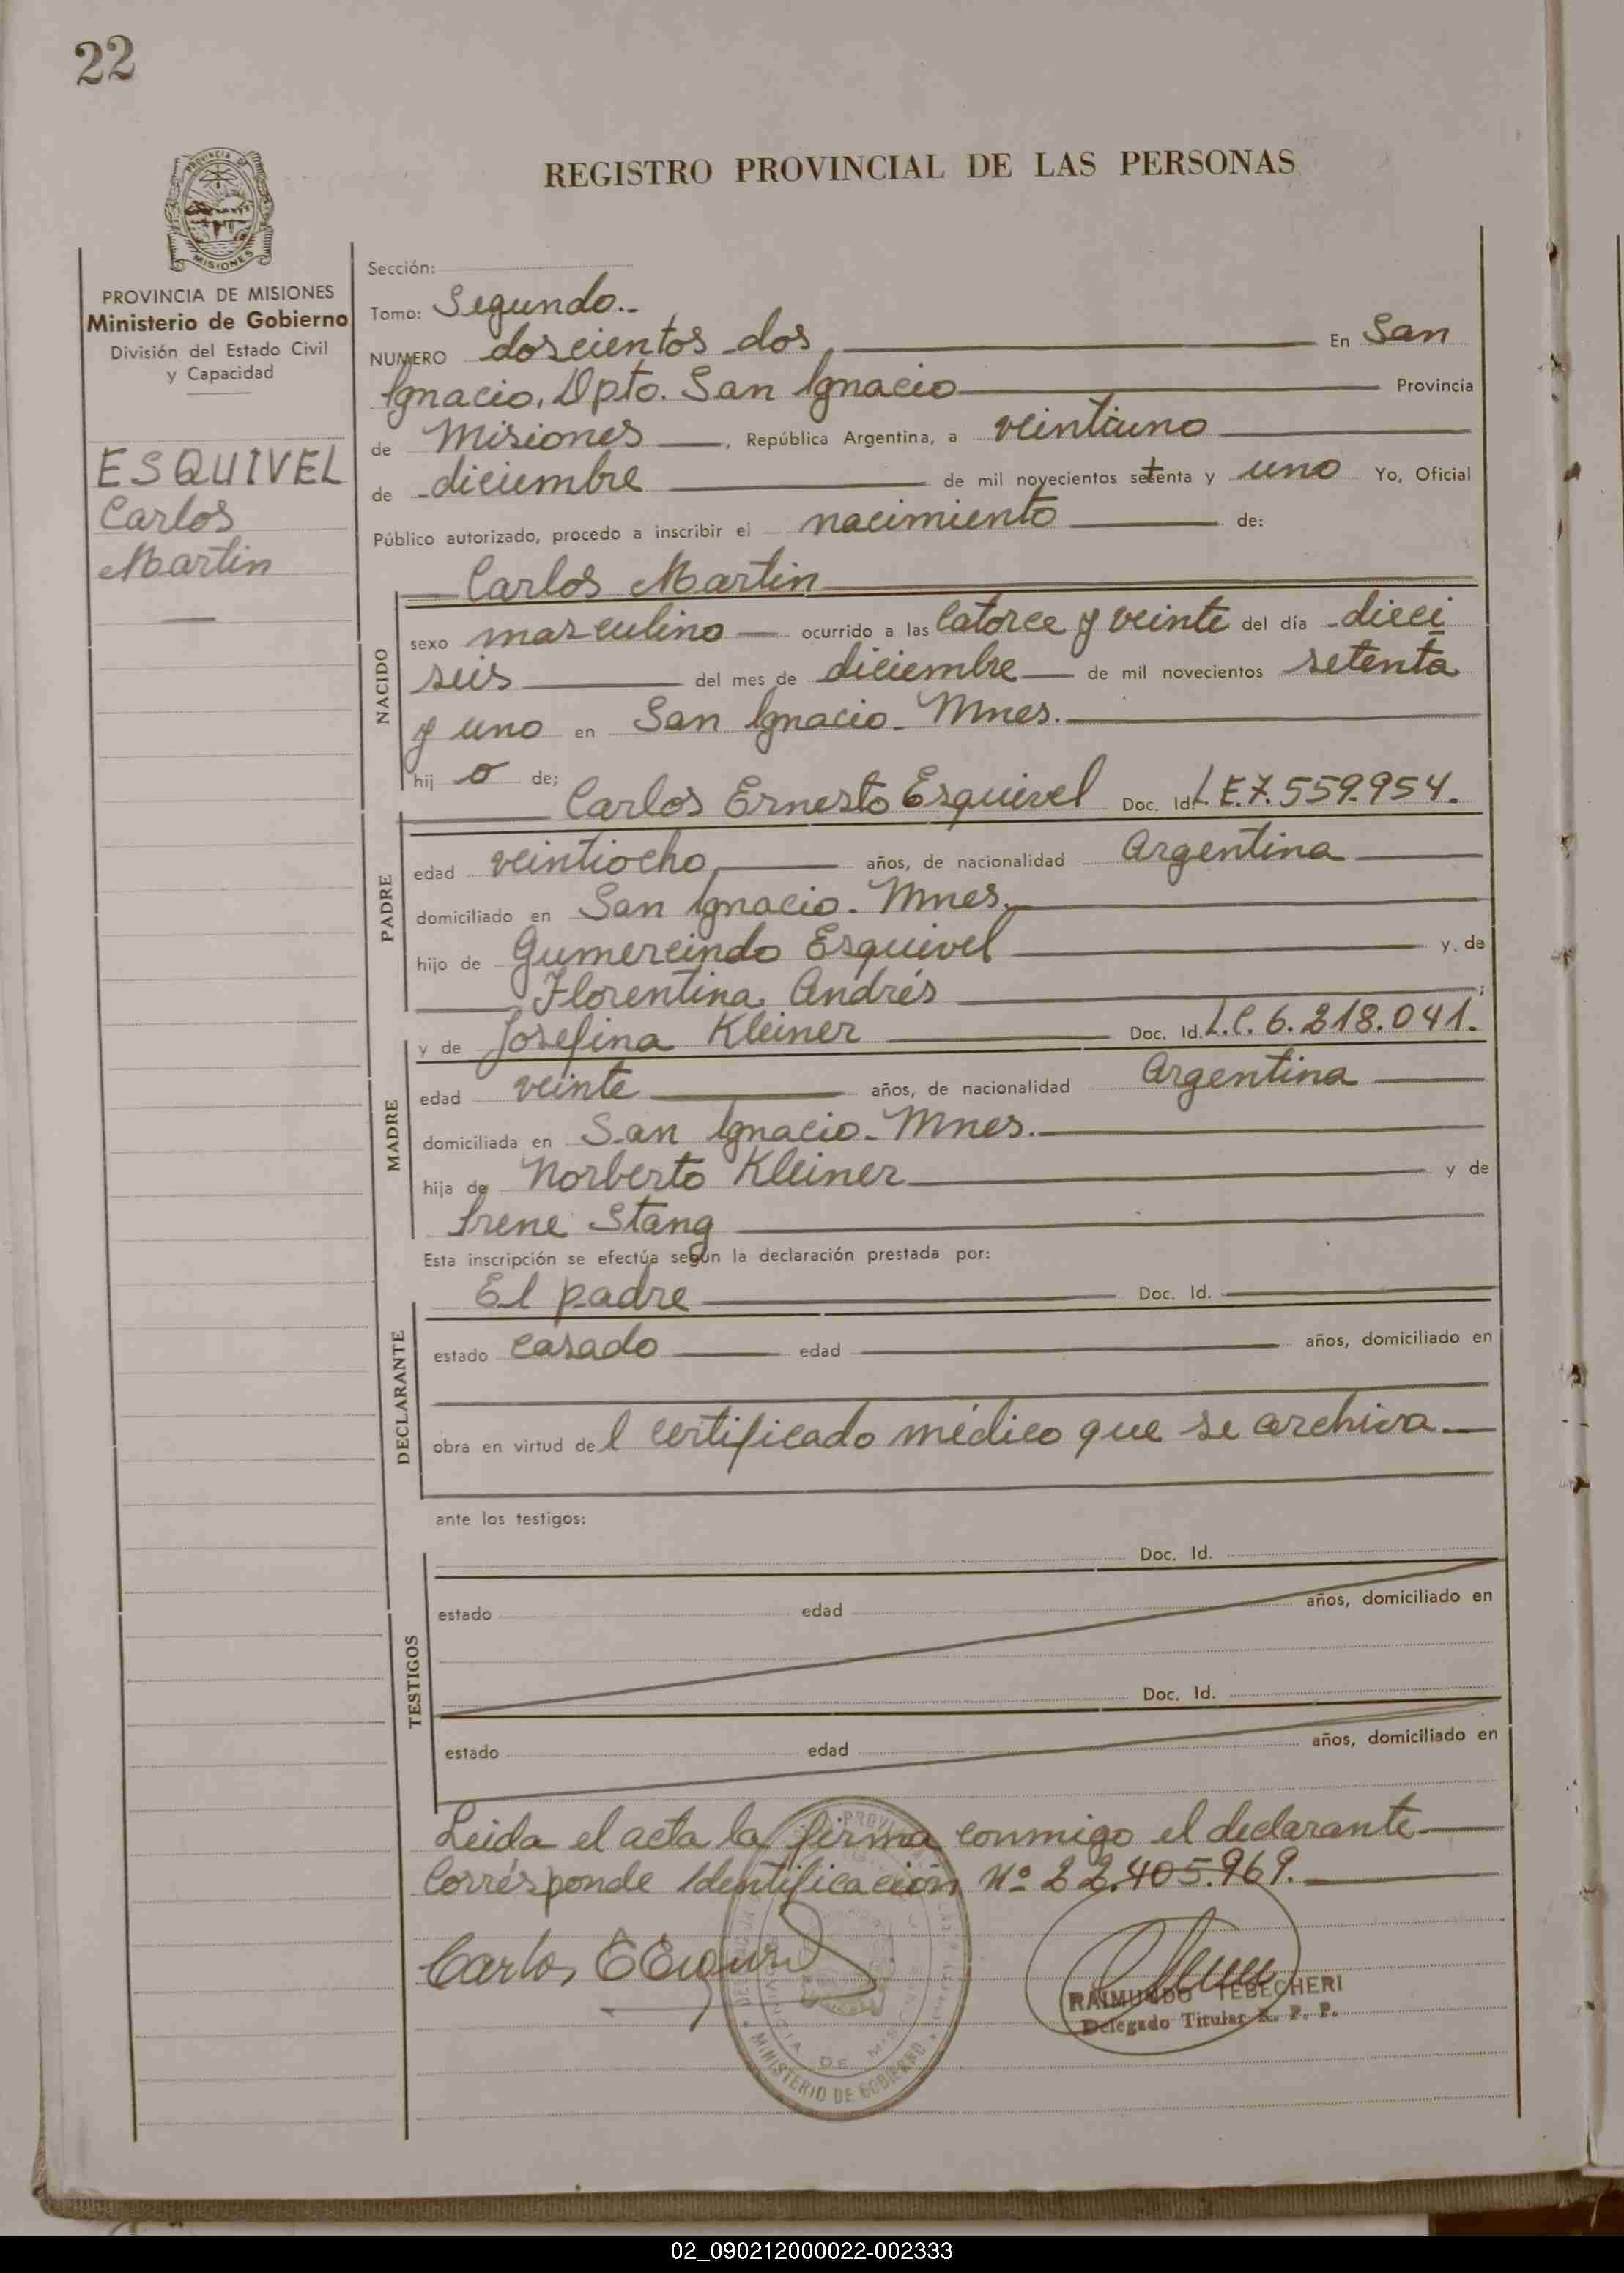 22
REGISTRO PROVINCIAL DE LAS PERSONAS
PROVINCIA DE MISIONES
Ministerio de Gobierno
División del Estado Civil
y Capacidad
ESQUIVEL
Carlos
Martin
Sección:
Tomo: Segundo.-
NUMERO doscientos dos, En San
Ignacio, Dpto. San Ignacio Provincia
de Misiones, República Argentina, a veintiuno
de diciembre de mil novecientos setenta y uno Yo, Oficial
Público autorizado, procedo a inscribir el nacimiento de:
Carlos Martin
NACIDO
sexo masculino ocurrido a las catorce y veinte del día dieci
seis del mes de diciembre de mil novecientos setenta
y uno en San Ignacio - Mnes.
hij o de;
PADRE
Carlos Ernesto Esquivel Doc. Id. L.E.7.559.954.
edad veintiocho, años, de nacionalidad Argentina
domiciliado en San Ignacio - Mnes.
hijo de Gumercindo Esquivel y de
Florentina Andrés;
MADRE
y de Josefina Kleiner Doc. Id. L.C. 6.218.041.
edad veinte años, de nacionalidad Argentina
domiciliada en San Ignacio - Mnes.
hija de Norberto Kleiner y de
Irene Stang
Esta inscripción se efectúa según la declaración prestada por:
DECLARANTE
El padre Doc. Id.
estado casado edad años, domiciliado en
obra en virtud del certificado médico que se archiva.
ante los testigos:
TESTIGOS
Doc. Id.
estado edad años, domiciliado en
Doc. Id.
estado edad años, domiciliado en
Leida el acta la firma conmigo el declarante
Corrésponde Identificación Nº 22.405.969.
Carlos E Esquivel
RAIMUNDO TEBECHERI
Delegado Titular R. P. P.
PROVINCIA DE MISIONES
MINISTERIO DE GOBIERNO
02_090212000022-002333